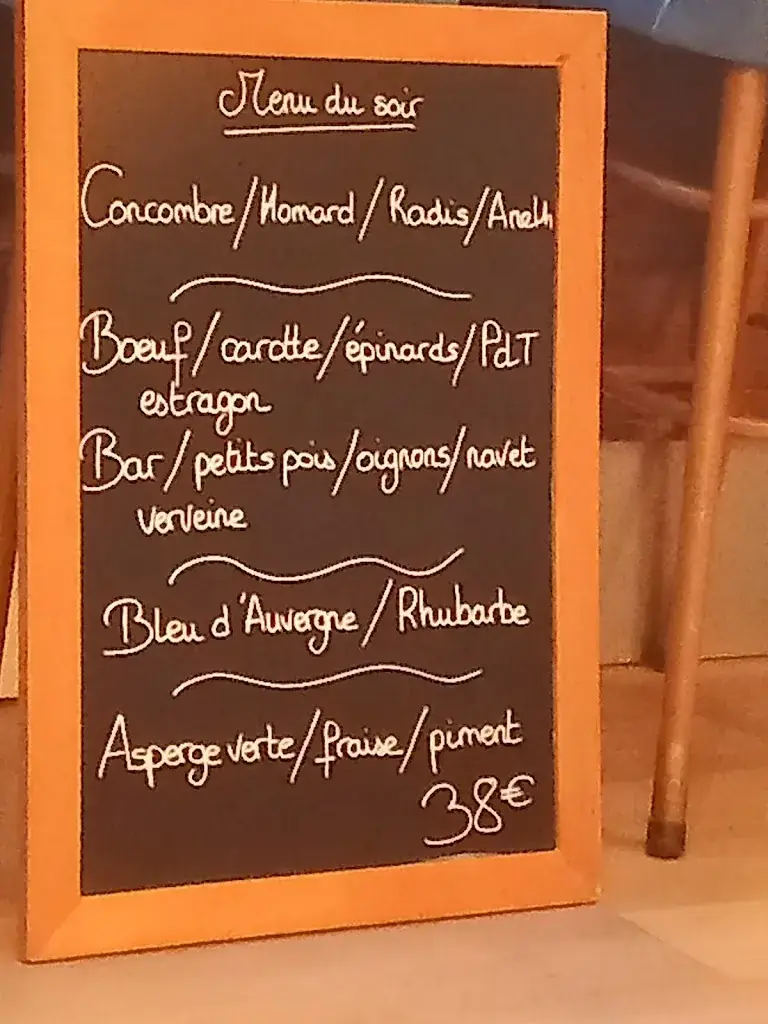 Menu du soir
Concombre/Homard/Radis/Aneth
Boeuf/carotte/épinards/PdT
estragon
Bar/petits pois/oignons/navet
verveine
Bleu d'Auvergne/Rhubarbe
Asperge verte/fraise/piment
38€